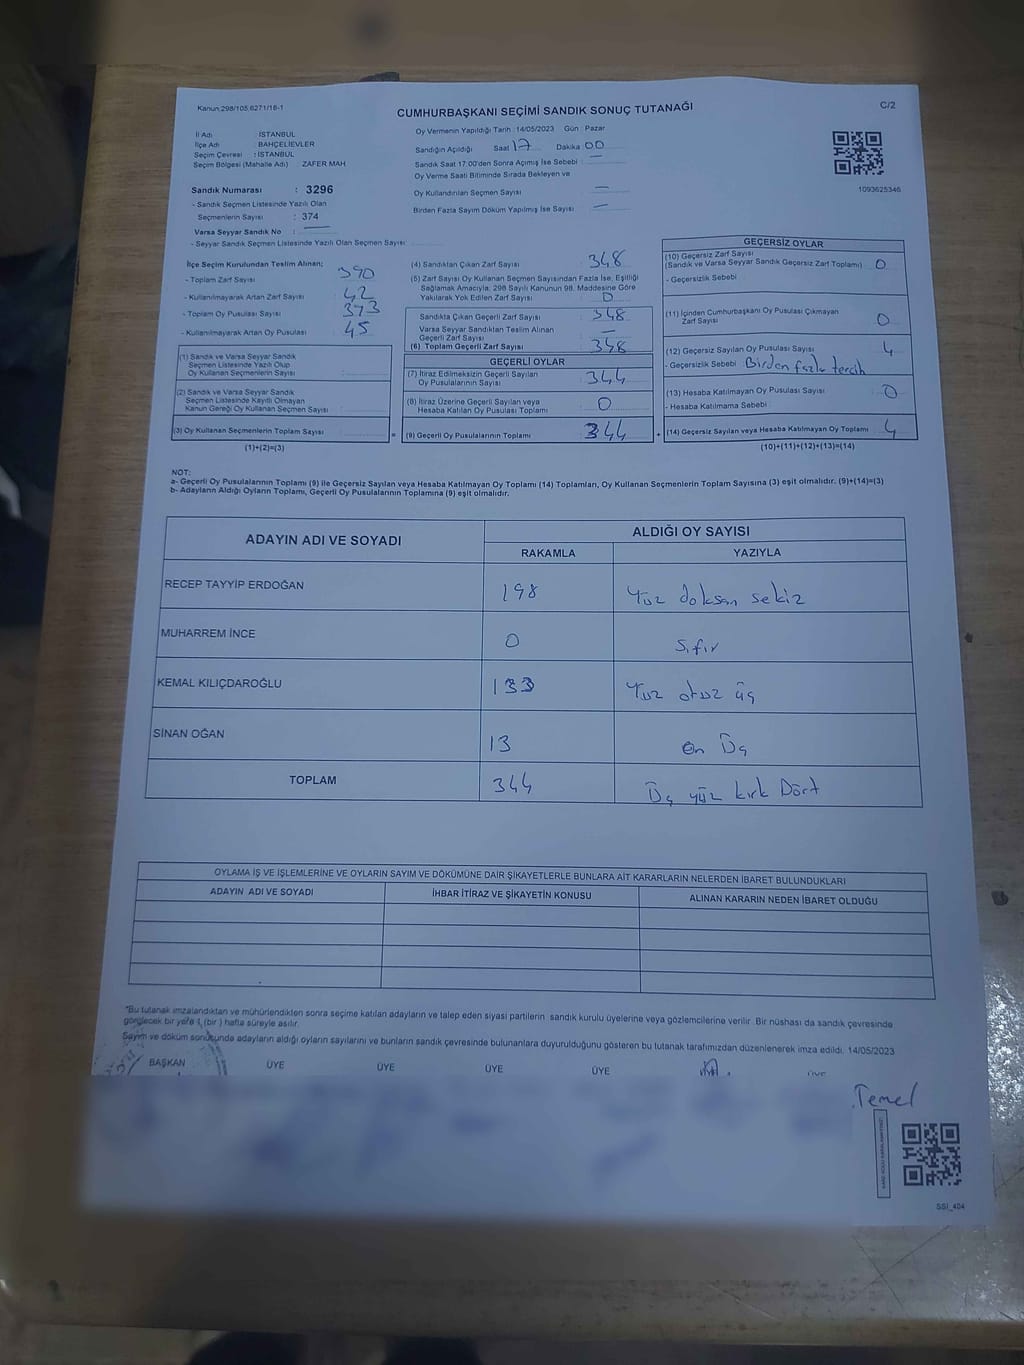 Kanun:298/105,6271/16-1
CUMHURBAŞKANI SEÇİMİ SANDIK SONUÇ TUTANAĞI
C/2
İl Adı : İSTANBUL
İlçe Adı : BAHÇELİEVLER
Seçim Çevresi : İSTANBUL
Seçim Bölgesi (Mahalle Adı) : ZAFER MAH
Sandık Numarası : 3296
- Sandık Seçmen Listesinde Yazılı Olan
Seçmenlerin Sayısı : 374
Varsa Seyyar Sandık No : —
- Seyyar Sandık Seçmen Listesinde Yazılı Olan Seçmen Sayısı
Oy Vermenin Yapıldığı Tarih :14/05/2023 Gün : Pazar
Sandığın Açıldığı Saat 17 Dakika 00
Sandık Saat 17:00'den Sonra Açımış İse Sebebi : —
Oy Verme Saati Bitiminde Sırada Bekleyen ve
Oy Kullandırılan Seçmen Sayısı —
Birden Fazla Sayım Döküm Yapılmış İse Sayısı : —
1093625346
İlçe Seçim Kurulundan Teslim Alınan;
- Toplam Zarf Sayısı : 390
- Kullanılmayarak Artan Zarf Sayısı : 42
- Toplam Oy Pusulası Sayısı : 393
- Kullanılmayarak Artan Oy Pusulası : 45
(1) Sandık ve Varsa Seyyar Sandık
Seçmen Listesinde Yazılı Olup
Oy Kullanan Seçmenlerin Sayısı :
(2) Sandık ve Varsa Seyyar Sandık
Seçmen Listesinde Kayıtlı Olmayan
Kanun Gereği Oy Kullanan Seçmen Sayısı :
(3) Oy Kullanan Seçmenlerin Toplam Sayısı :
(1)+(2)=(3)
(4) Sandıktan Çıkan Zarf Sayısı : 348
(5) Zarf Sayısı Oy Kullanan Seçmen Sayısından Fazla İse, Eşitliği
Sağlamak Amacıyla, 298 Sayılı Kanunun 98. Maddesine Göre
Yakılarak Yok Edilen Zarf Sayısı : 0
Sandıkta Çıkan Geçerli Zarf Sayısı : 348
Varsa Seyyar Sandıktan Teslim Alınan
Geçerli Zarf Sayısı : —
(6) Toplam Geçerli Zarf Sayısı : 348
GEÇERLİ OYLAR
(7) İtiraz Edilmeksizin Geçerli Sayılan
Oy Pusulalarının Sayısı : 344
(8) İtiraz Üzerine Geçerli Sayılan veya
Hesaba Katılan Oy Pusulası Toplamı : 0
= (9) Geçerli Oy Pusulalarının Toplamı : 344
GEÇERSİZ OYLAR
(10) Geçersiz Zarf Sayısı
(Sandık ve Varsa Seyyar Sandık Geçersiz Zarf Toplamı) : 0
- Geçersizlik Sebebi
(11) İçinden Cumhurbaşkanı Oy Pusulası Çıkmayan
Zarf Sayısı : 0
(12) Geçersiz Sayılan Oy Pusulası Sayısı : 4
- Geçersizlik Sebebi Birden fazla tercih
(13) Hesaba Katılmayan Oy Pusulası Sayısı : 0
- Hesaba Katılmama Sebebi :
+ (14) Geçersiz Sayılan veya Hesaba Katılmayan Oy Toplamı : 4
(10)+(11)+(12)+(13)=(14)
NOT:
a- Geçerli Oy Pusulalarının Toplamı (9) ile Geçersiz Sayılan veya Hesaba Katılmayan Oy Toplamı (14) Toplamları, Oy Kullanan Seçmenlerin Toplam Sayısına (3) eşit olmalıdır. (9)+(14)=(3)
b- Adayların Aldığı Oyların Toplamı, Geçerli Oy Pusulalarının Toplamına (9) eşit olmalıdır.
ADAYIN ADI VE SOYADI
ALDIĞI OY SAYISI
RAKAMLA YAZIYLA
RECEP TAYYİP ERDOĞAN 198 Yüz doksan sekiz
MUHARREM İNCE 0 Sıfır
KEMAL KILIÇDAROĞLU 133 Yüz otuz üç
SİNAN OĞAN 13 On Üç
TOPLAM 344 Üç yüz kırk Dört
OYLAMA İŞ VE İŞLEMLERİNE VE OYLARIN SAYIM VE DÖKÜMÜNE DAİR ŞİKAYETLERLE BUNLARA AİT KARARLARIN NELERDEN İBARET BULUNDUKLARI
ADAYIN ADI VE SOYADI İHBAR İTİRAZ VE ŞİKAYETİN KONUSU ALINAN KARARIN NEDEN İBARET OLDUĞU
*Bu tutanak imzalandıktan ve mühürlendikten sonra seçime katılan adayların ve talep eden siyasi partilerin sandık kurulu üyelerine veya gözlemcilerine verilir. Bir nüshası da sandık çevresinde
görülecek bir yere 1 (bir) hafta süreyle asılır.
Sayım ve döküm sonucunda adayların aldığı oyların sayılarını ve bunların sandık çevresinde bulunanlara duyurulduğunu gösteren bu tutanak tarafımızdan düzenlenerek imza edildi. 14/05/2023
BAŞKAN ÜYE ÜYE ÜYE ÜYE ÜYE
Temel
SSI_404